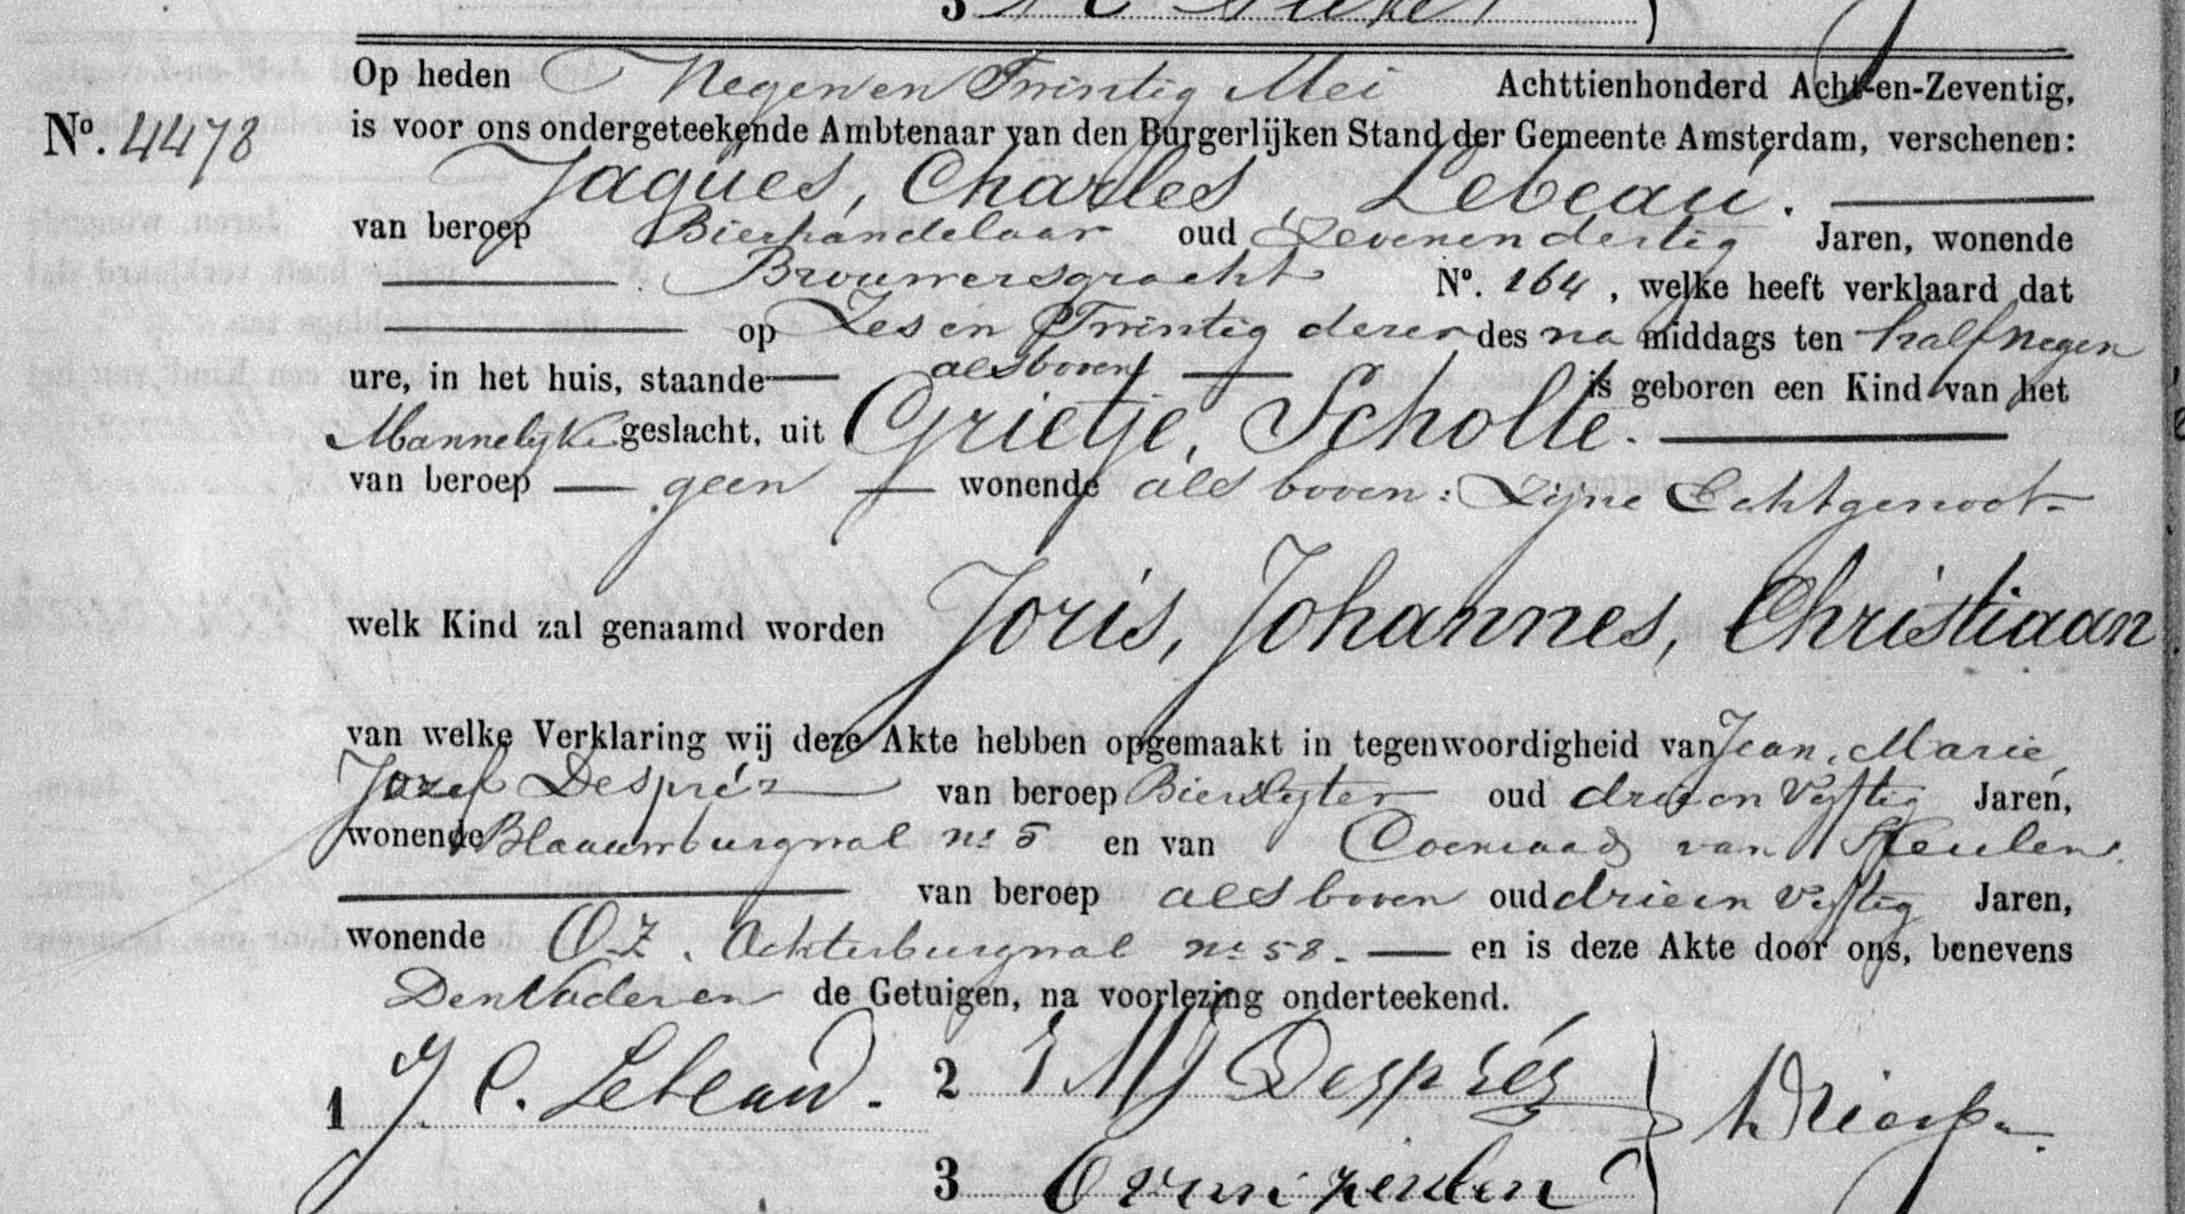 3
Op heden Negen en Twintig Mei Achttienhonderd Acht-en-Zeventig,
No. 4478
is voor ons ondergeteekende Ambtenaar van den Burgerlijken Stand der Gemeente Amsterdam, verschenen:
Jaques, Charles, Lebeau.
van beroep Bierhandelaar oud Zevenendertig Jaren, wonende
Brouwersgracht No. 164, welke heeft verklaard dat
op Zes en Twintig dezer des na middags ten half negen
ure, in het huis, staande als boven is geboren een Kind van het
Mannelyke geslacht, uit Grietje, Scholte.
van beroep geen wonende als boven: Zijne Echtgenoot
welk Kind zal genaamd worden Joris, Johannes, Christiaan
van welke Verklaring wij deze Akte hebben opgemaakt in tegenwoordigheid van Jean, Marie,
Jozef Despréz van beroep Bierslyter oud drie en Vyftig Jaren,
wonende Blaauwburgwal no 5 en van Coenraad van Keulen.
van beroep als boven oud drie en Vyftig Jaren,
wonende O.Z. Achterburgwal no 58. en is deze Akte door ons, benevens
Den Vader en de Getuigen, na voorlezing onderteekend.
1 J. C. Lebeau. 2 J M J Despréz
3 C van Keulen